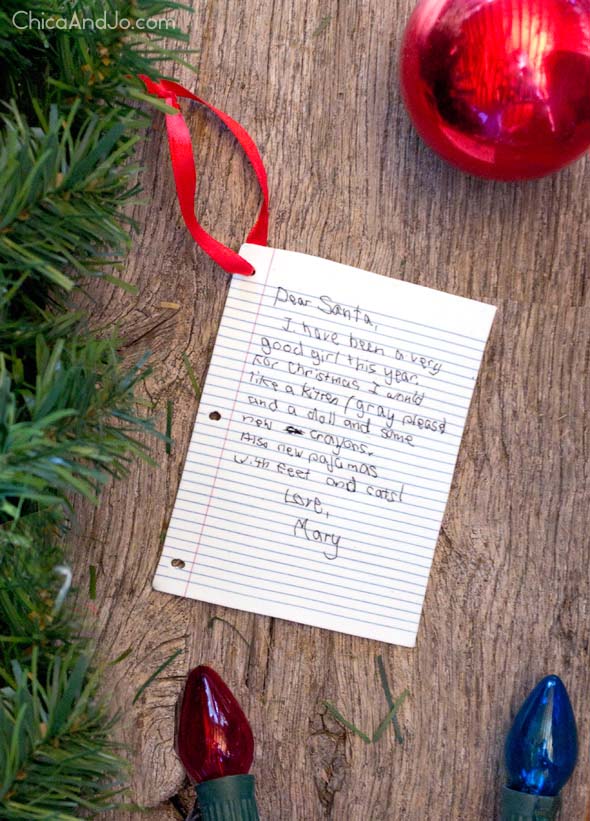 ChicaAndJo.com
Dear Santa,
I have been a very
good girl this year.
For Christmas I would
like a kitten (gray please)
and a doll and some
new crayons.
Also new pajamas
with feet and cats!
Love,
Mary